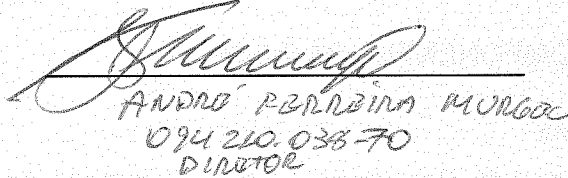 ANDRÉ FERREIRA MURGEL
094 210.038-70
DIRETOR